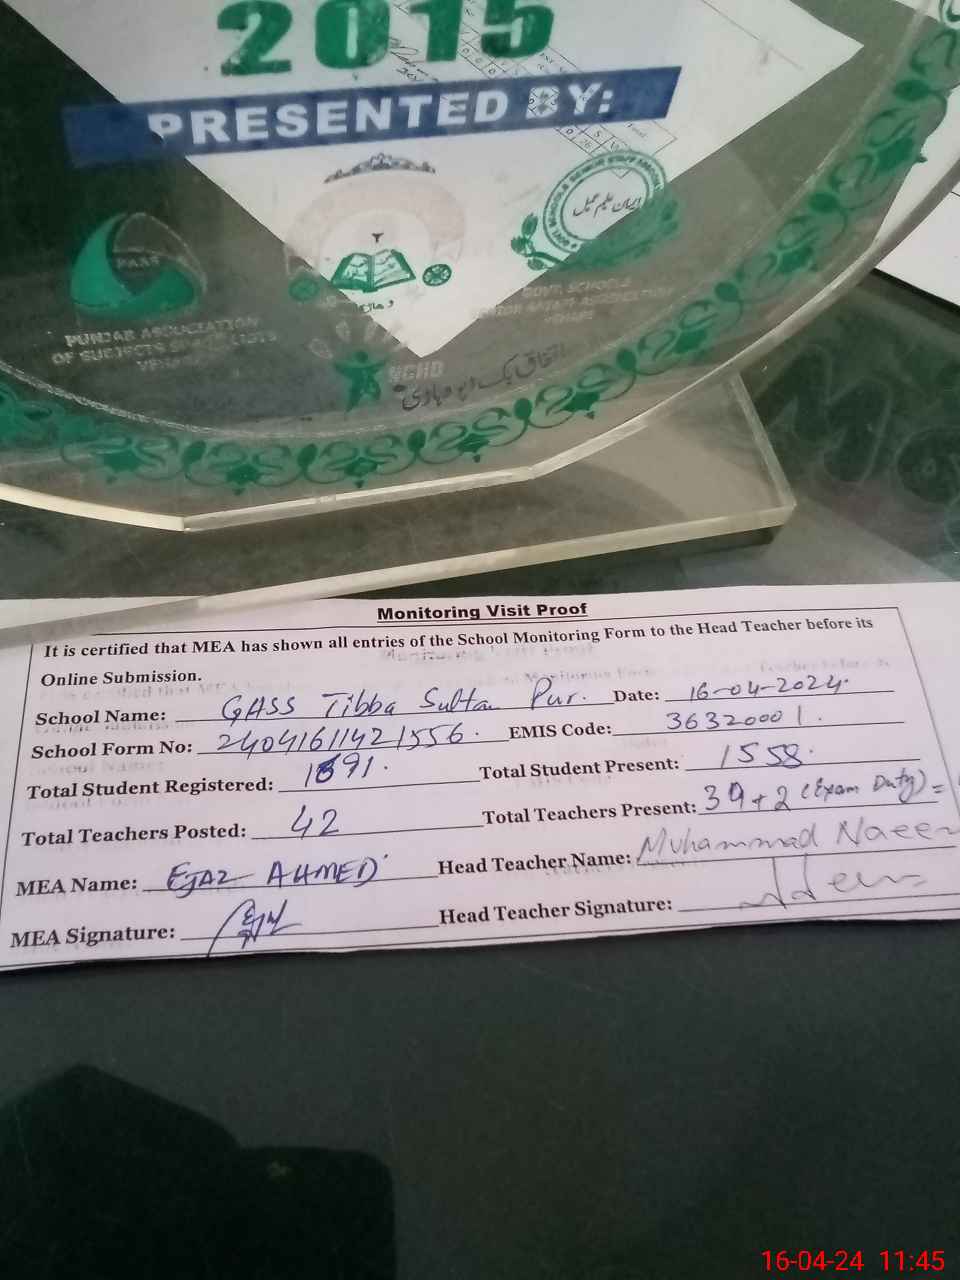 2015
PRESENTED BY:
ایمان علم عمل
PASS
PUNJAB ASSOCIATION
OF SUBJECTS SPECIALISTS
GOVT. SCHOOLS
SENIOR STAFF ASSOCIATION
VEHARI
وہاڑی
NCHD
اتفاق بک ڈپو وہاڑی
Monitoring Visit Proof
It is certified that MEA has shown all entries of the School Monitoring Form to the Head Teacher before its
Online Submission.
School Name: GHSS Tibba Sultan Pur. Date: 16-04-2024.
School Form No: 24041611421556. EMIS Code: 36320001.
Total Student Registered: 1691. Total Student Present: 1558.
Total Teachers Posted: 42 Total Teachers Present: 39+2 (Exam Duty) =
MEA Name: EJAZ AHMED Head Teacher Name: Muhammad Naeem
MEA Signature: Head Teacher Signature:
16-04-24 11:45